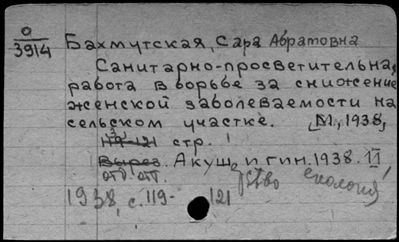 О
3914
Бахмутская, Сара Абратовна
Санитарно-просветительная
работа в борьбе за снижение
женской заболеваемости на
сельском участке. [М., 1938,
119-121 стр.
Вырез. Акуш. и гин. 1938. 11
отд. отт. ство екология
1938, с. 119- 121